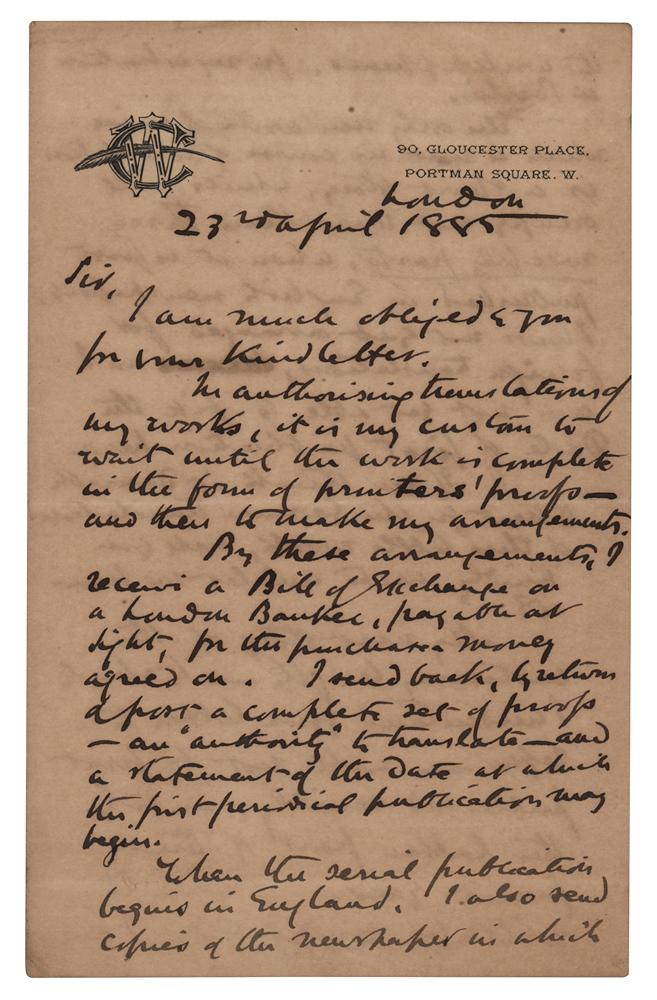 WC
90, GLOUCESTER PLACE,
PORTMAN SQUARE. W.
London
23rd April 1885
Sir,
I am much obliged to you
for your kind letter.
In authorising translations of
my works, it is my custom to
wait until the work is complete
in the form of printers' proofs—
and then to make my arrangements.
By these arrangements, I
receive a Bill of Exchange on
a London Banker, payable at
sight, for the purchase money
agreed on. I send back, by return
of post a complete set of proofs
—an "authority" to translate—and
a statement of the Date at which
the first periodical publication may
begin.
When the serial publication
begins in England, I also send
copies of the newspaper in which